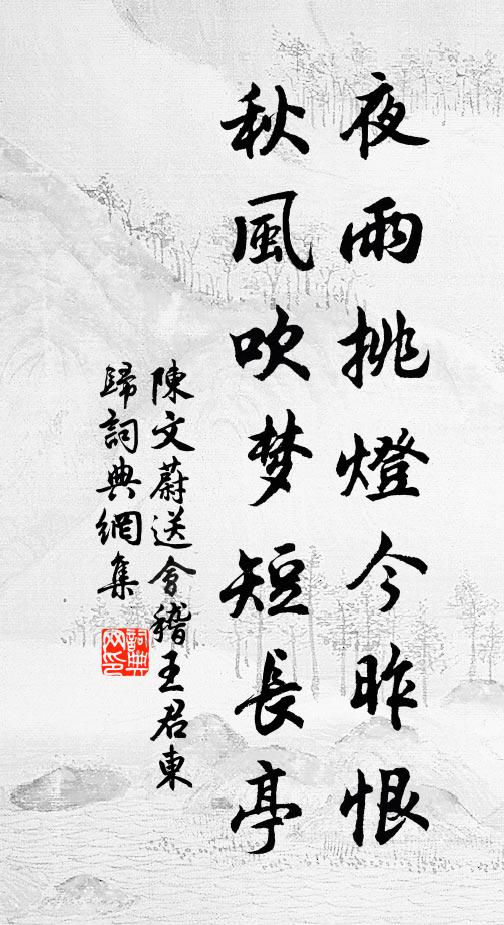 夜雨挑燈今昨恨
秋風吹梦短長亭
陳文蔚送會稽王君東
歸詞典網集
詞典
网印